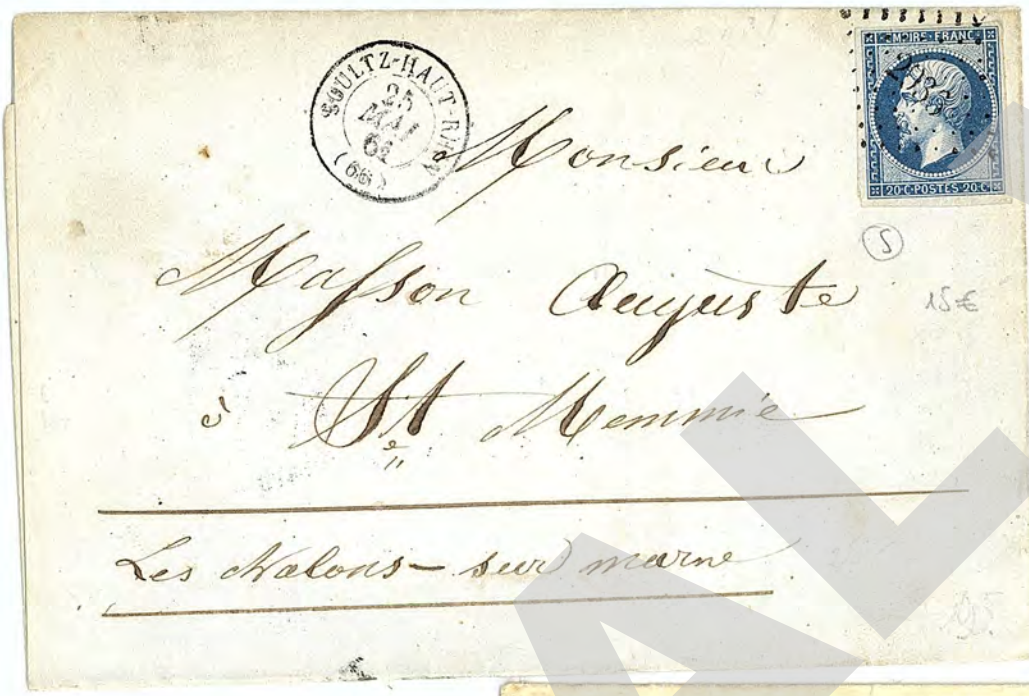 SOULTZ-HAUT-RHIN
25
MAI
61
(66)
EMPIRE FRANC
20 C POSTES 20 C
Monsieur
S
Masson Auguste
15 €
à St Memmie
Les Chalons-sur marne